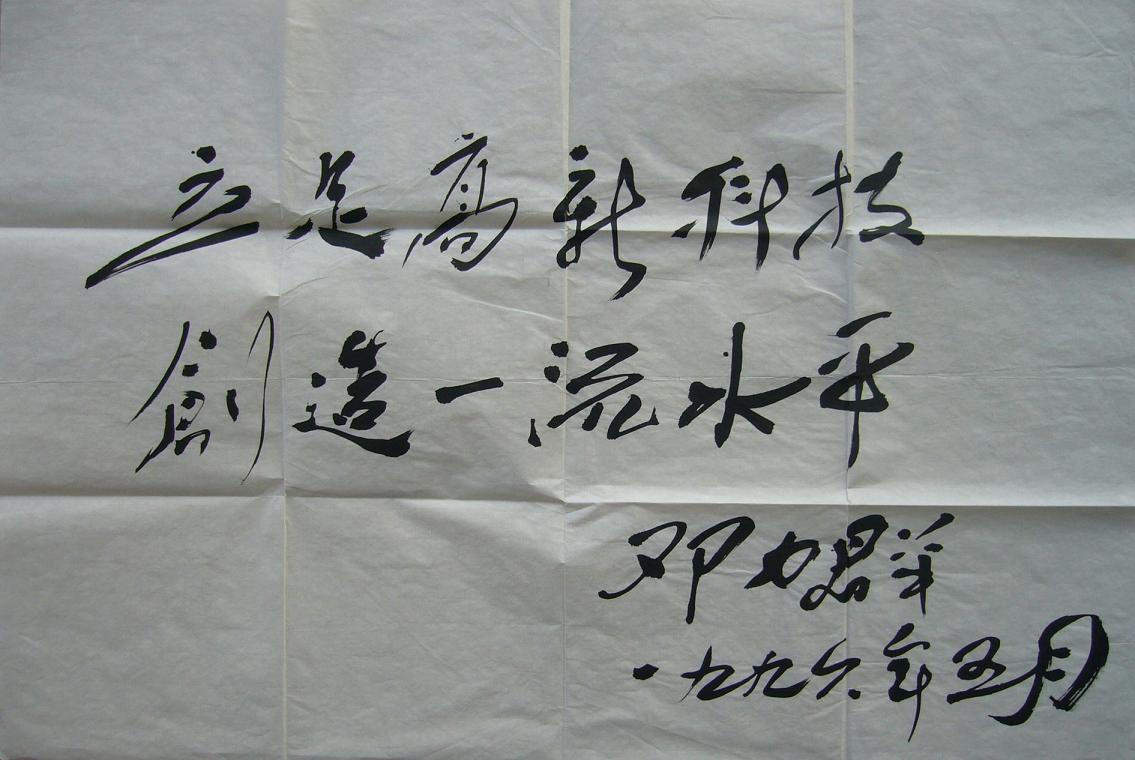 立足高新科技
創造一流水平
邓力群
一九九六年五月